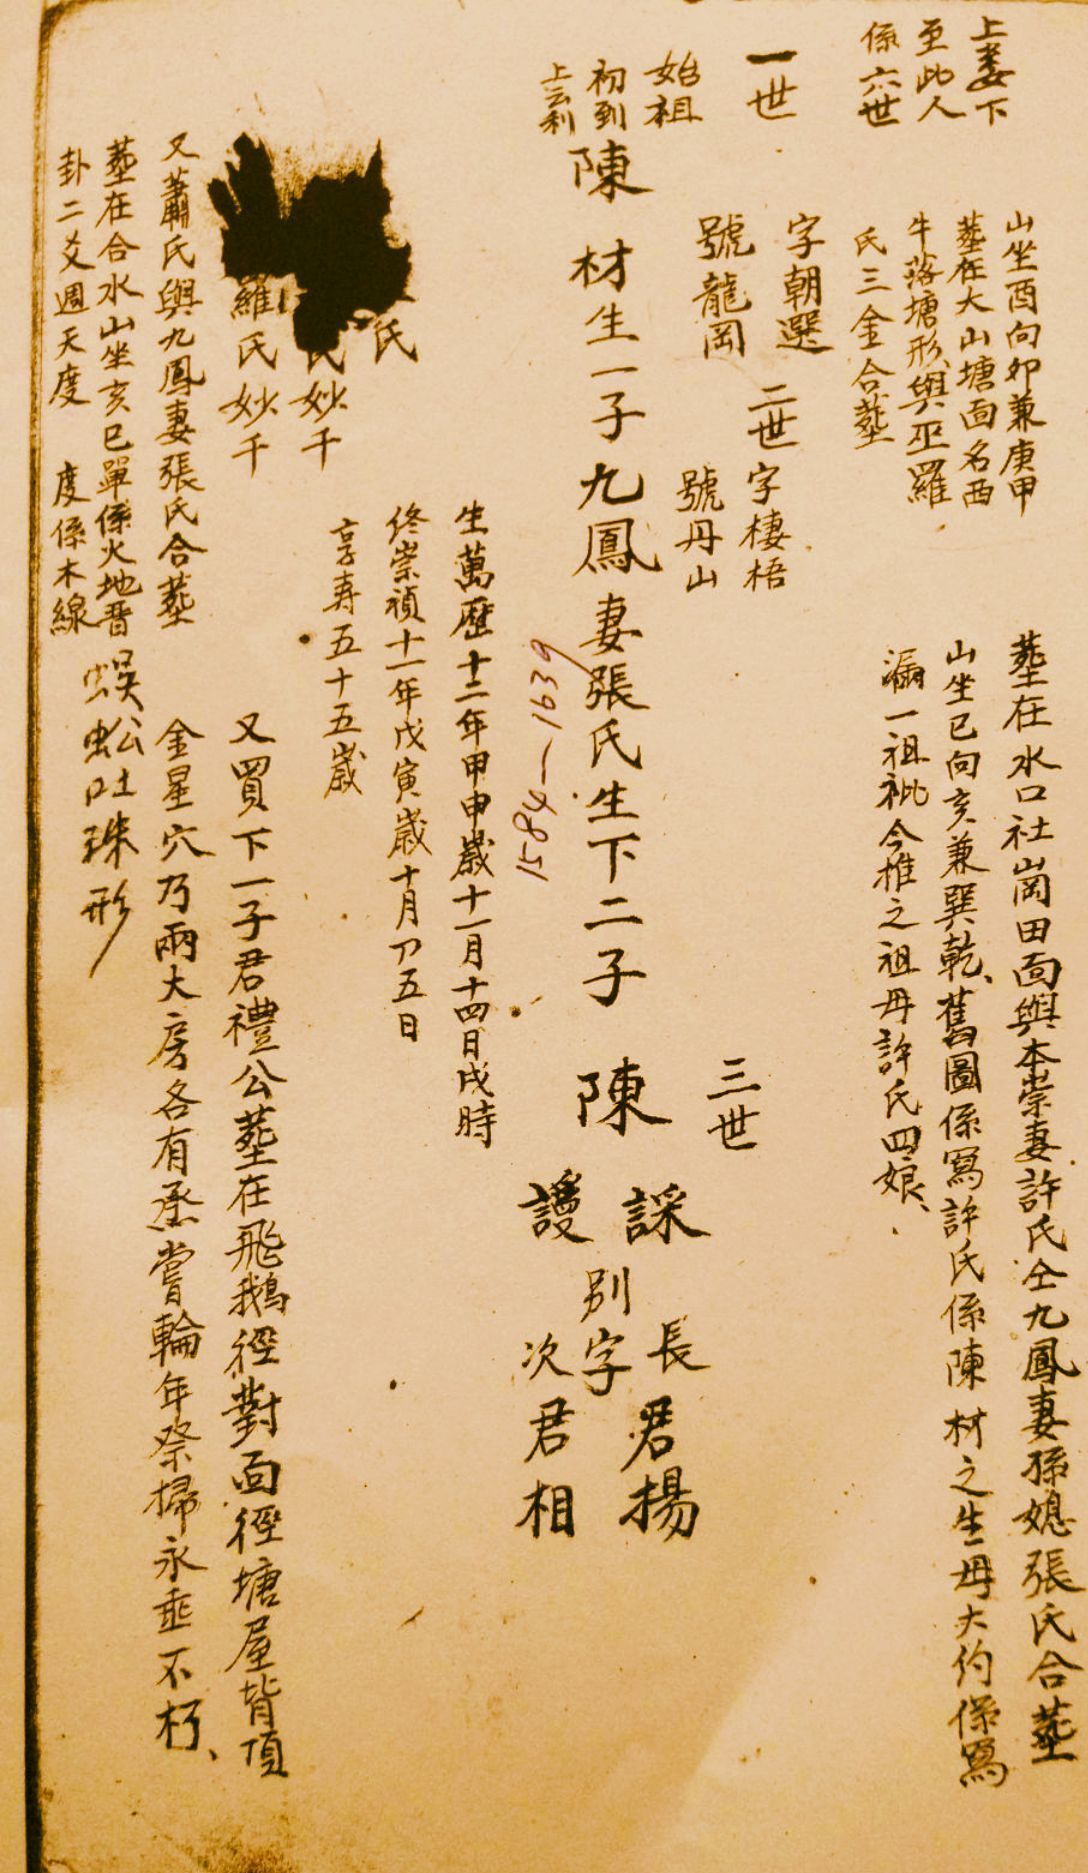 上葬下
至此人
係六世
山坐酉向卯兼庚甲
塟在大山塘面名西
牛落塘形與巫羅
氏三金合塟
塟在水口社崗田面與本崇妻許氏仝九鳳妻孫媳張氏合塟
山坐巳向亥兼巽乾、舊圖係寫許氏係陳材之生母大約係寫
漏一祖妣今推之祖母許氏四娘、
一世
始祖
初到
上云利
字朝選
號龍岡
二世
字棲梧
號丹山
三世
陳材生一子九鳳妻張氏生下二子陳
謀
謾
別字
長君揚
次君相
1584—1639
生萬歷十二年甲申歲十一月十四日戌時
終崇禎十一年戊寅歲十月卩五日
享壽五十五歲
氏
氏妙千
羅氏妙千
又買下一子君禮公塟在飛鵝徑對面徑塘屋背頂
又蕭氏與九鳳妻張氏合塟
金星穴乃兩大房各有烝嘗輪年祭掃永垂不朽、
塟在合水山坐亥巳單係火地晋
卦二爻週天度 度係木線
蜈蚣吐珠形